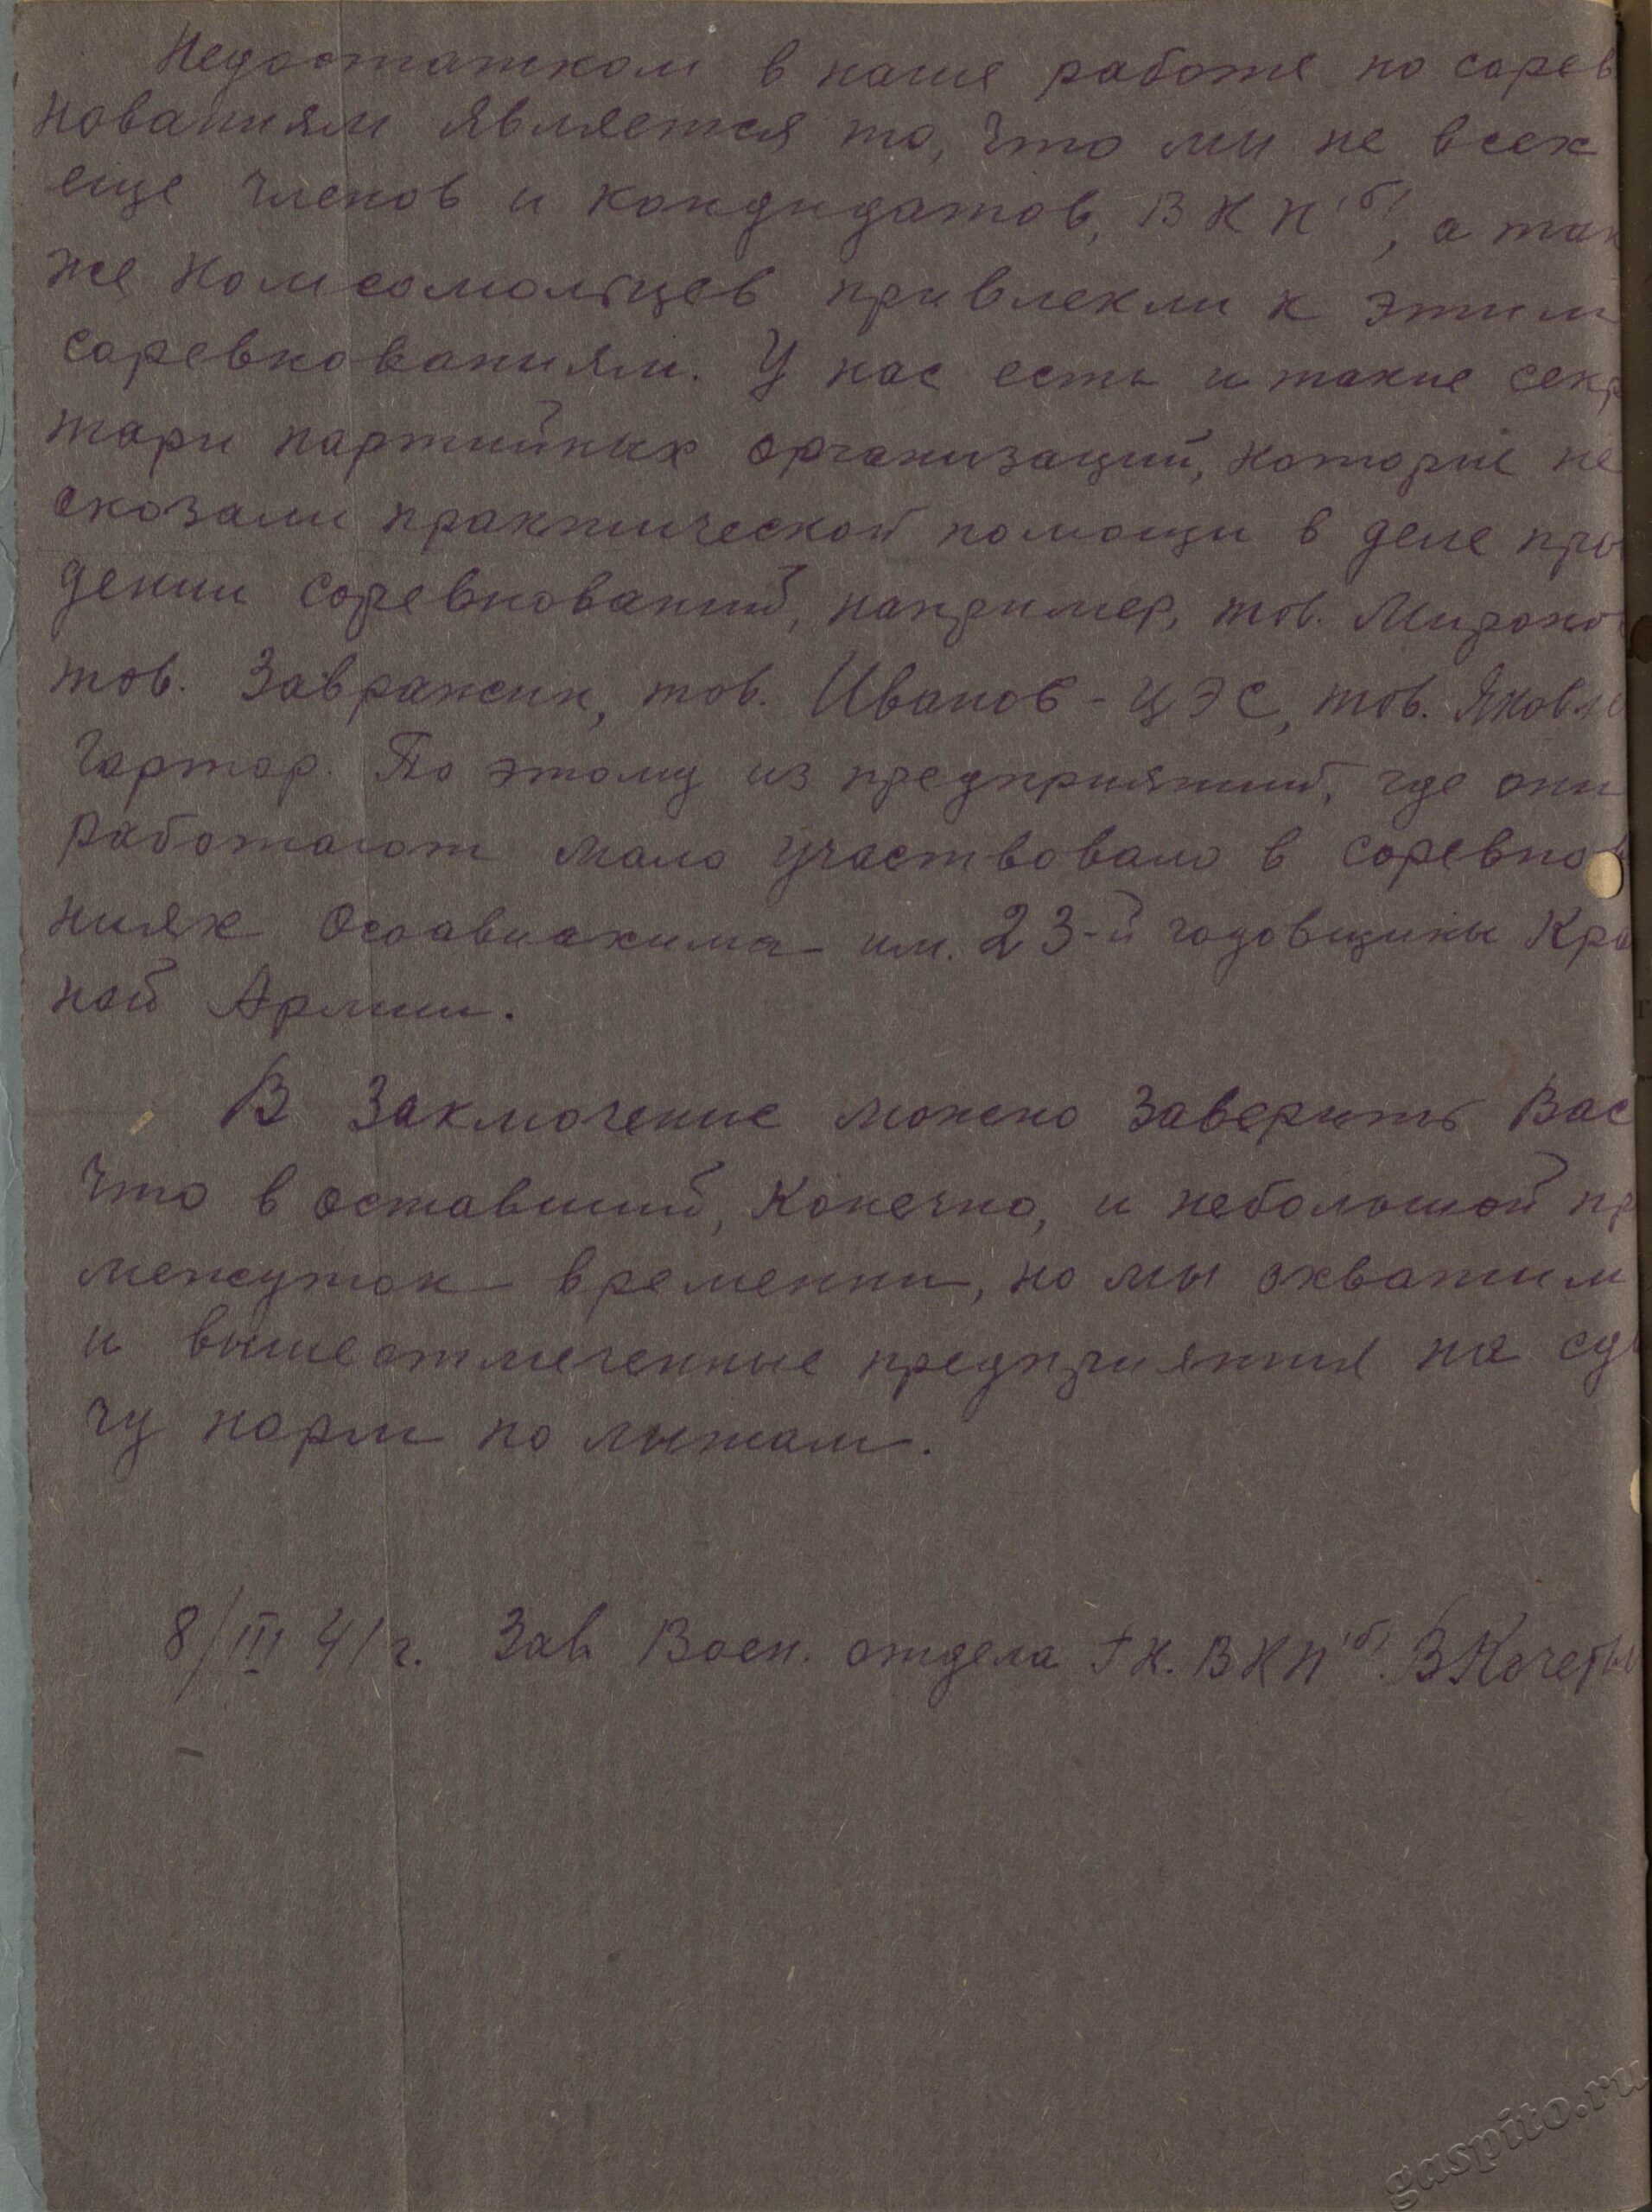 Недостатком в наше работе по сорев
нованиям является то, что мы не всех
еще членов и кондидатов, ВКП(б), а так
же комсомольцев привлекли к этим
соревнованиям. У нас есть и такие секр
тари партийных организаций, которые не
оказали практической помощи в деле про
дении соревнований, например, тов. Миронов
тов. Завражин, тов. Иванов - ЦЭС, тов.
По этому из предприятий, где они
работают мало участвовало в соревнов
ниях Осоавиахима им. 23-й годовщины Кра
ной Армии.
В заключение можно заверить Вас
что в оставший, конечно, и небольшой пр
межуток временни, но мы охватим
и вышеотмеченные предприятия на сда
чу норм по лыжам.
8/III 41 г. Зав. Воен. отдела ГК. ВКП(б)
gaspito.ru